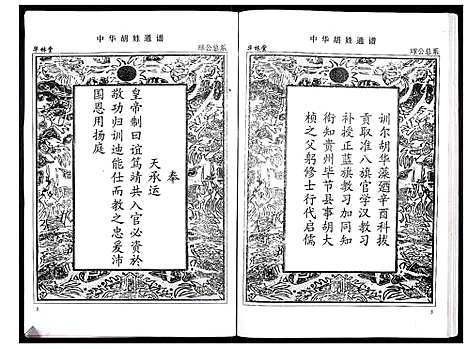 中华胡姓通谱
华林堂
公总系
奉
天承运
皇帝制曰谊笃靖共入官必资於
敬功归训迪能仕而教之忠爱沛
国恩用扬庭
中华胡姓通谱
华林堂
公总系
训尔胡华藻迺辛酉科拔
贡取准八旗官学汉教习
补授正蓝旗教习加同知
衔知贵州毕节县事胡大
桢之父躬修士行代启儒